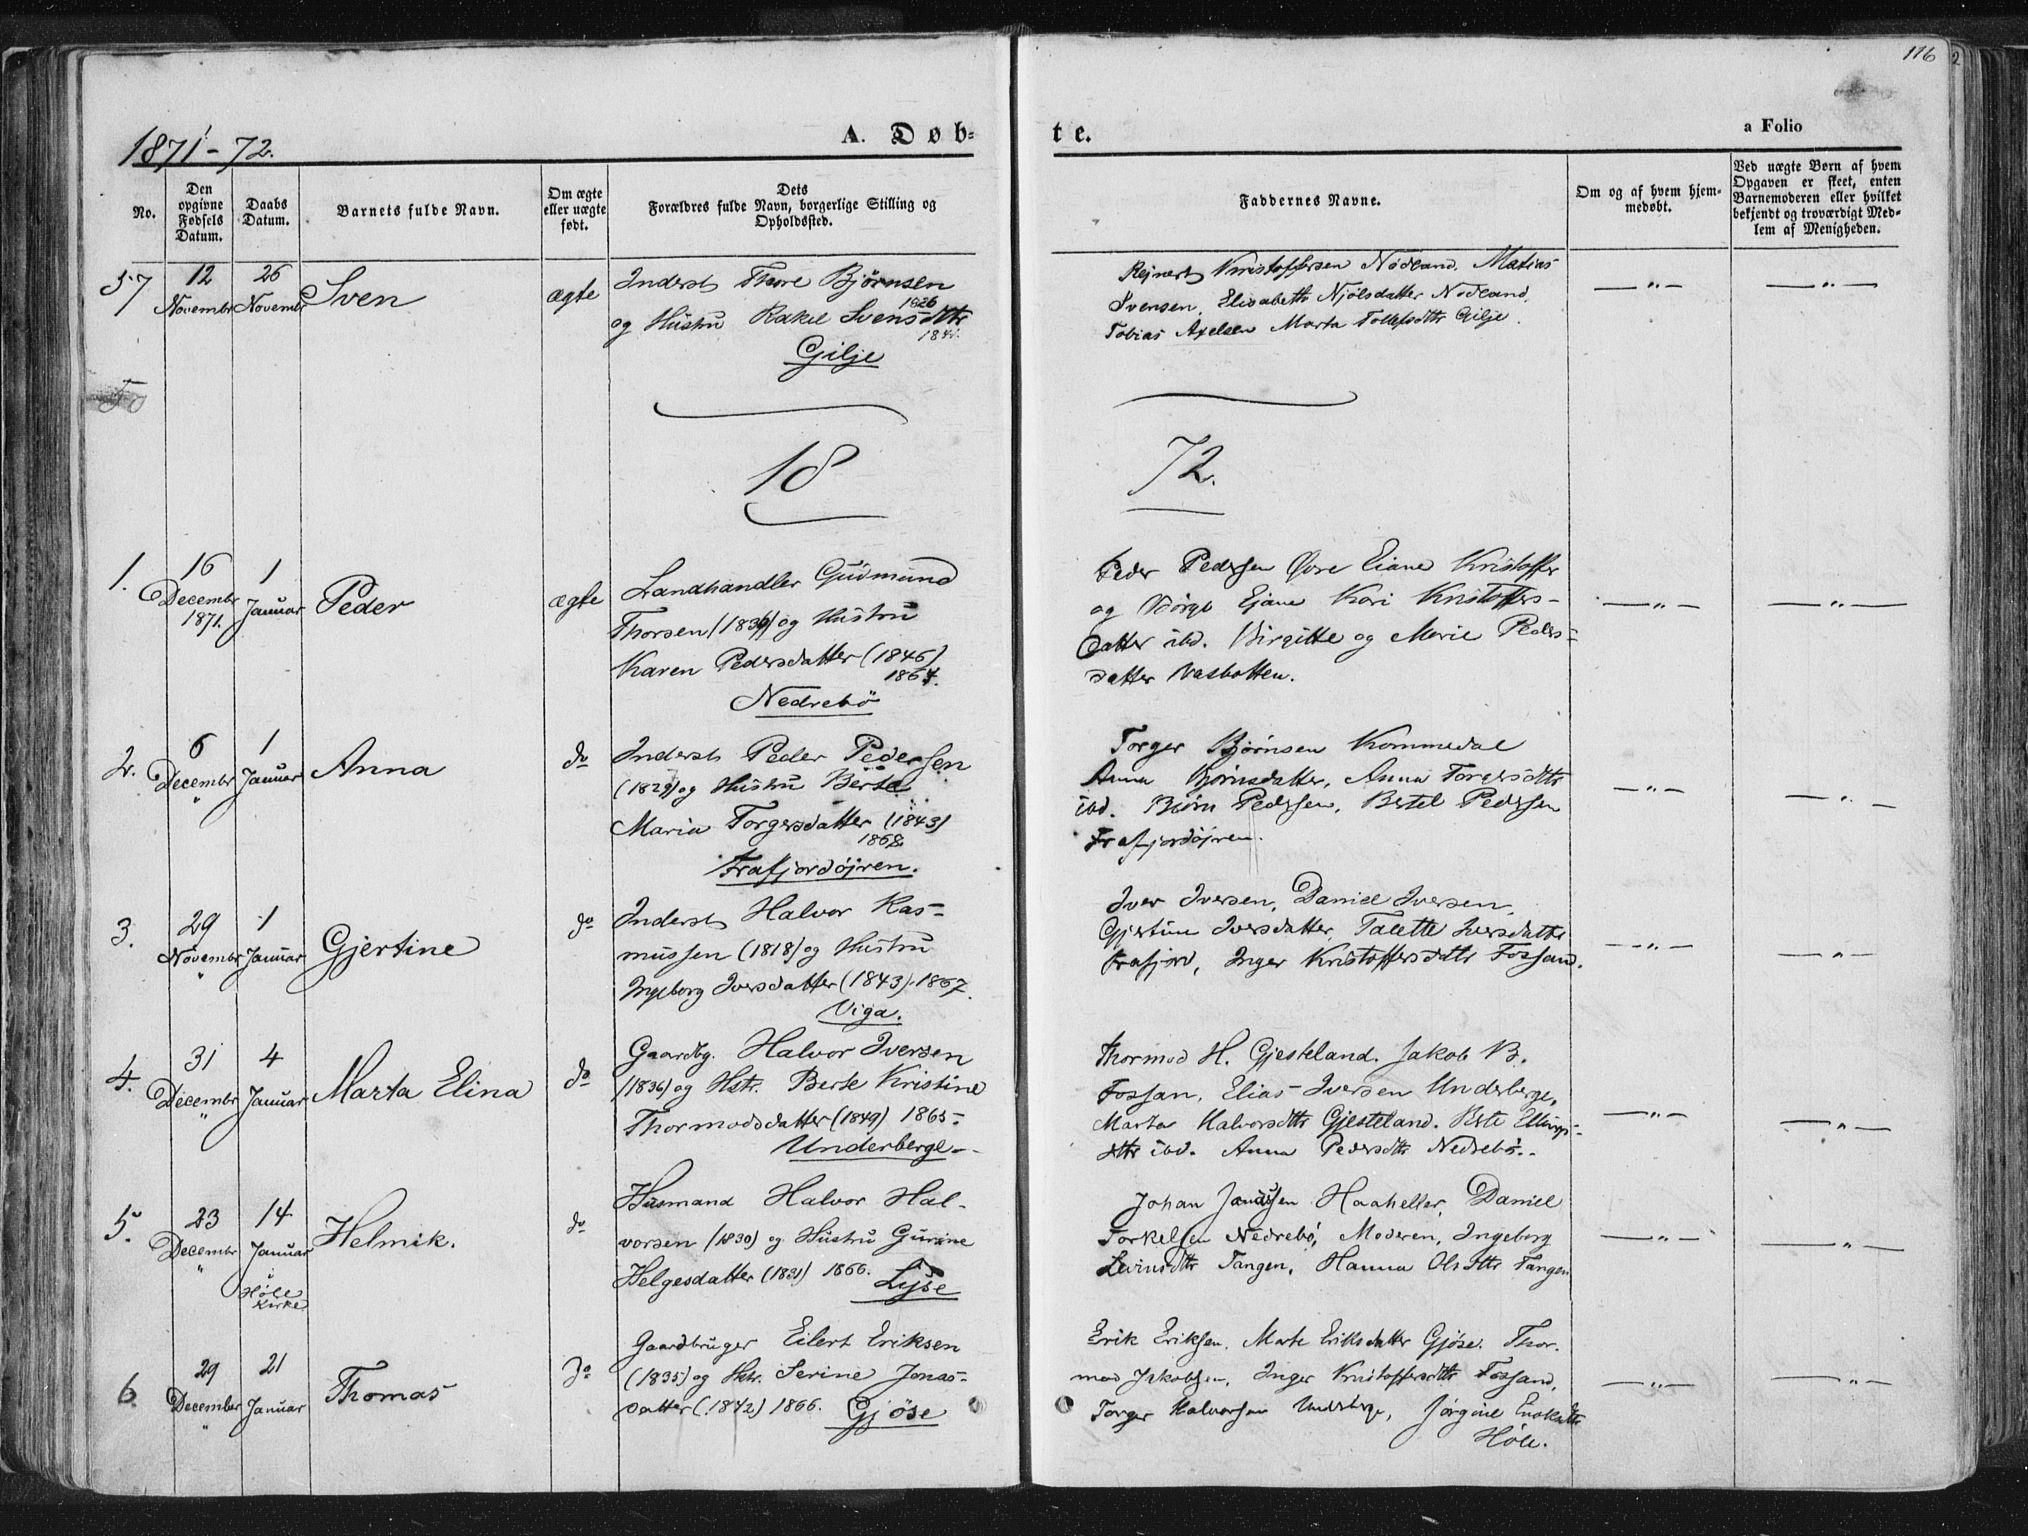 116
2
1871-72.
A. Døb-
te.
a Folio
No.
Den opgivne Fødsels Datum.
Daabs Datum.
Barnets fulde Navn.
Om ægte eller uægte født.
Dets Forældres fulde Navn, borgerlige Stilling og Opholdssted.
Faddernes Navne.
Om og af hvem hjemmedøbt.
Ved uægte Børn af hvem Opgaven er skeet, enten Barnemoderen eller hvilket bekjendt og troværdigt Medlem af Menigheden.
57
12 Novembr
26 Novembr
Sven
ægte
Inderst Thore Bjørnsen
1826
og Hustru Rakel Svensdttr
184
Gilje
Rejnert Kristoffersen Nødland, Matias
Svensen, Elisabeth Njølsdatter Nødland,
Tobias Axelsen Marta Tollefsdttr Gilje.
— " —
— " —
18
72.
1.
16 Decembr 1871.
1 Januar
Peder
ægte
Landhandler Gudmund
Thorsen (1836) og Hustru
Karen Pedersdatter (1846)
1864.
Nedrebö
Peder Pedersen Øvre Eiane Kristoffer
og Børge Ejane Kari Kristoffers-
datter ibd. Birgitte og Marie Peders-
datter Vasbotten.
— " —
— " —
2.
6 Decembr "
1 Januar
Anna
do
Inderst Peder Pedersen
(1829) og Hustru Berte
Maria Torgersdatter (1843)
1868
Frafjordøjren.
Torger Bjørnsen Kommedal
Anna Bjørnsdatter, Anna Torgersdttr
ibd. Bjørn Pedersen, Bertel Pedersen
Frafjordøjren.
— " —
— " —
3.
29 Novembr "
1 Januar
Gjertine
do
Inderst Halvor Ras-
mussen (1818) og Hustru
Ingeborg Iversdatter (1843). 1867.
Viga.
Iver Iversen, Daniel Iversen,
Gjertine Iversdatter, Talette Iversdattr
Frafjord, Inger Kristoffersdttr Fossand.
— " —
— " —
4.
31 Decembr "
4 Januar
Marta Elina
do
Gaardbg. Halvor Iversen
(1836) og Hstr. Berte Kristine
Thormodsdatter (1849) 1865.
Underberge.
Thormod H. Gjesteland. Jakob B.
Fossan, Elias Iversen Underberge,
Marta Halvorsdttr Gjesteland. Berte Ellings-
dttr ibd. Anna Pedersdttr Nedrebö.
— " —
— " —
5.
23 Decembr "
14 Januar
Höle Kirke
Helmik.
do
Husmand Halvor Hal-
vorsen (1830) og Hustru Gurine
Helgesdatter (1831) 1866.
Lyse
Johan Haaheller, Daniel
Torkelsen Nedrebö, Moderen, Ingeborg
Tangen, Hanna Olsdttr Tangen
— " —
— " —
6.
29 December "
21 Januar
Thomas
do
Gaardbruger Eilert Eriksen
(1835) og Hstr. Serine Jonas-
datter (1842) 1866. Gjøse
Erik Eriksen, Marte Eriksdatter Gjøse. Thor-
mod Jakobsen, Inger Kristoffersdttr Fossand,
Torger Halvorsen Underberge, Jørgine Enoksdttr
Höle.
— " —
— " —